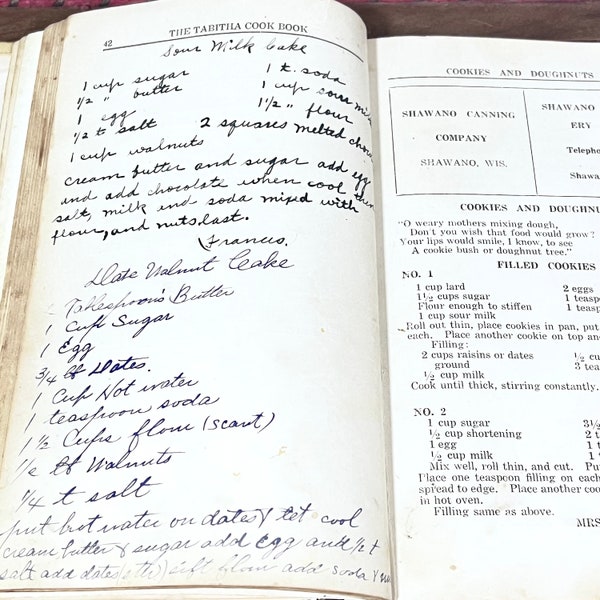 42
THE TABITHA COOK BOOK
Sour Milk Cake
1 cup sugar
1/2 " butter
1 egg
1/2 t salt
1 cup walnuts
1 t. soda
1 cup sour
1 1/2 " flour
2 squares melted
cream butter and sugar add egg
and add chocolate when cool then
salt, milk and soda mixed with
flour, and nuts last.
Frances.
Date Walnut Cake
Tablespoons Butter
1 Cup Sugar
1 Egg
3/4 lb Dates.
1 Cup Hot water
1 teaspoon soda
1 1/2 Cups flour (scant)
lb Walnuts
1/4 t salt
put hot water on dates & let cool
cream butter & sugar add egg and 1/2 t
salt add dates flour add soda &
COOKIES AND DOUGHNUTS
SHAWANO CANNING
COMPANY
SHAWANO, WIS.
SHAWANO
ERY
COOKIES AND
"O weary mothers mixing dough,
Don't you wish that food would grow?
Your lips would smile, I know, to see
A cookie bush or doughnut tree."
FILLED COOKIES
NO. 1
1 cup lard
1½ cups sugar
Flour enough to stiffen
1 cup sour milk
2 eggs
1
1
Roll out thin, place cookies in pan, put
each. Place another cookie on top
Filling:
2 cups raisins or dates
ground
½ cup milk
½
3
Cook until thick, stirring constantly.
NO. 2
1 cup sugar
½ cup shortening
1 egg
½ cup milk
3½
2
1
1
Mix well, roll thin, and cut.
Place one teaspoon filling on each
spread to edge. Place another
in hot oven.
Filling same as above.
MRS